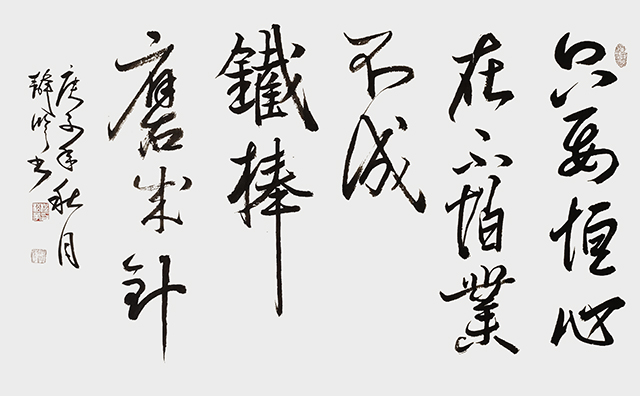 只要恒心
在不怕業
不成
鐵棒
磨成針
庚子年秋月
書